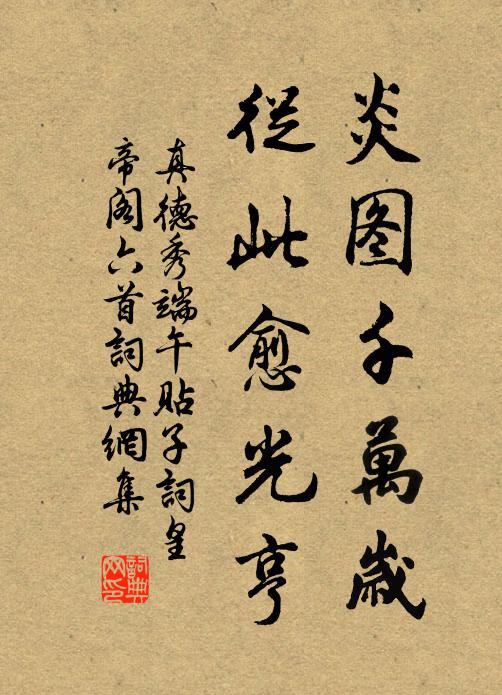 炎图千萬歲
從此愈光亨
真德秀端午貼子詞皇
帝阁六首詞典網集
詞典网印